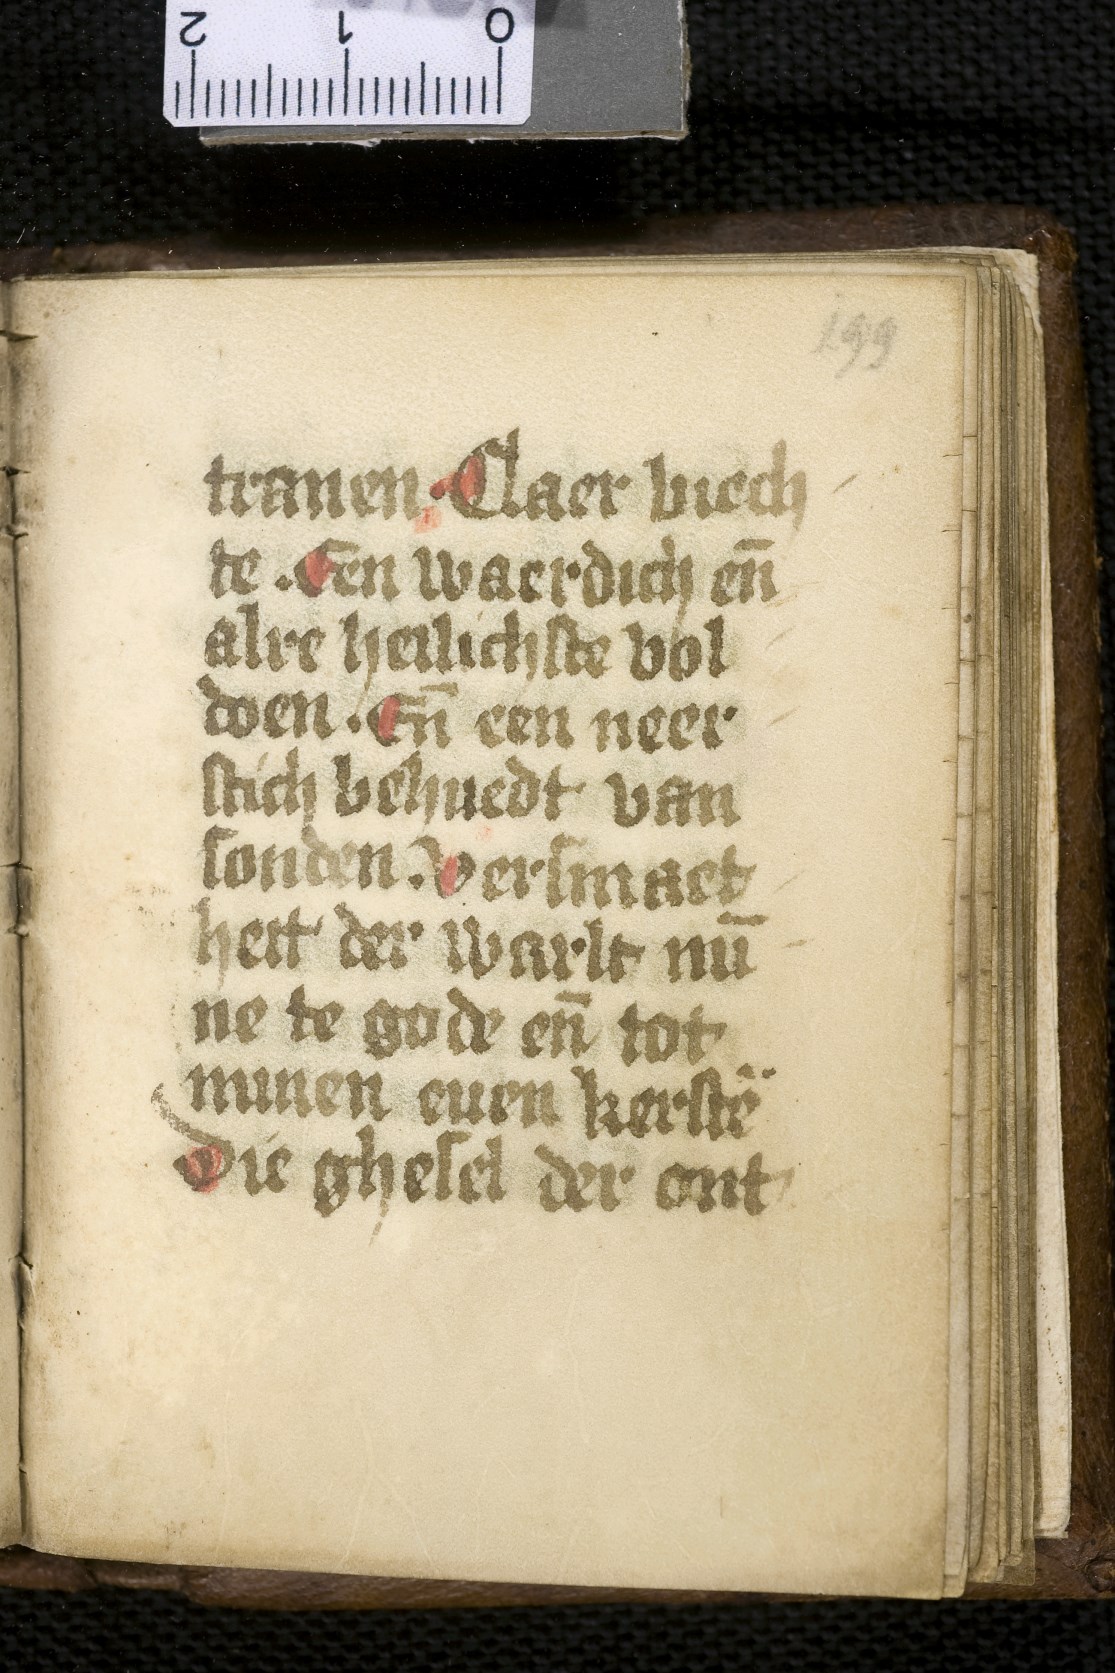 2 1 0
199
tranen. Claer biech
te. Een waerdich en̄
alre heilichste vol
doen. En̄ een neer
stich behuedt van
sonden. Versmaet
heit der warlt mū
ne te gode en̄ tot
minen euen kerstē
Die ghesel der ont